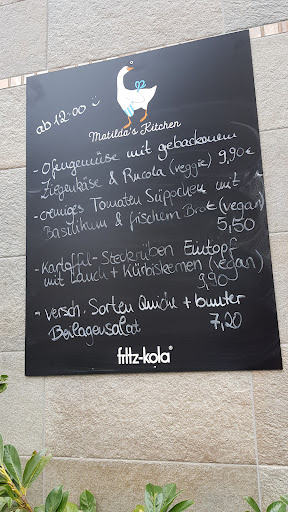 ab 12:00 :)
Matilda's Kitchen
- Ofengemüse mit gebackenem
Ziegenkäse & Rucola (veggie) 9,90€
- cremiges Tomaten Süppchen mit
Basilikum & frischem Brot (vegan)
5,50
- Kartoffel-Steckrüben Eintopf
mit Lauch + Kürbiskernen (vegan)
9,90
- versch. Sorten Quiche + bunter
Beilagensalat 7,20
fritz-kola®